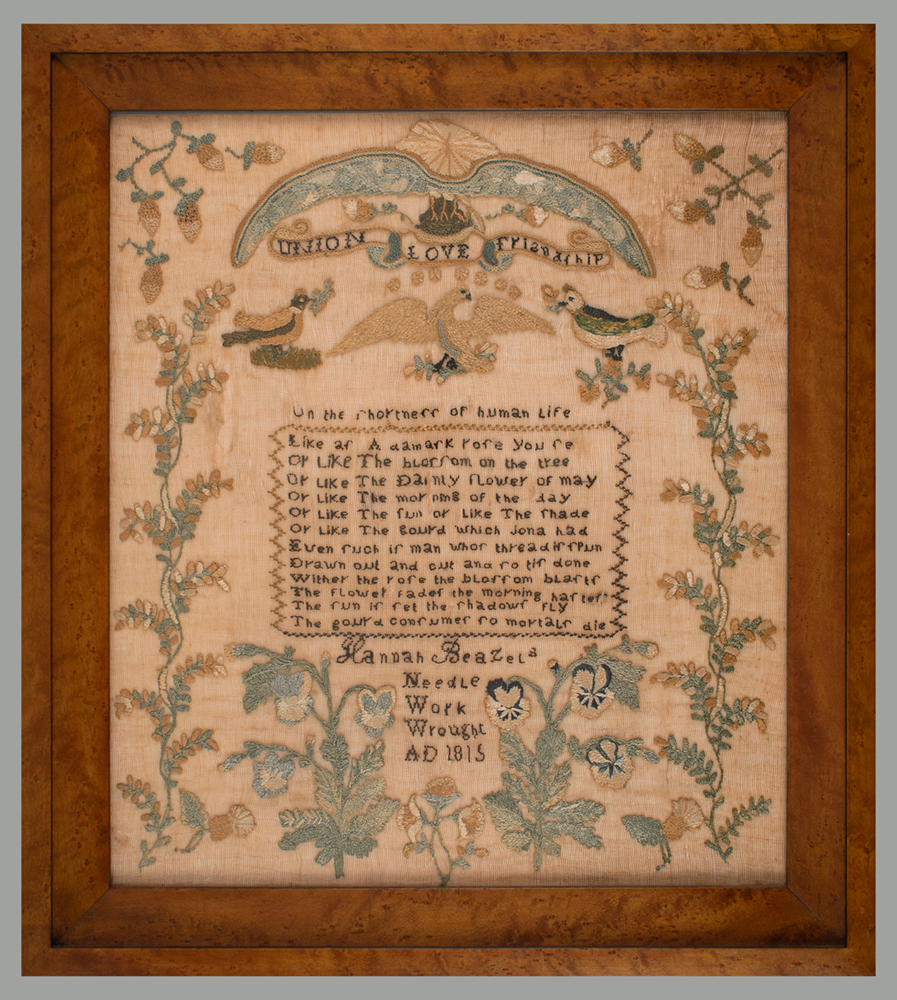 UNION LOVE Friendſhip
On the ſhortneſſ of human Life
Like aſ A damaſk roſe You ſe
Or Like The bloſſom on the tree
Or Like The Dainty flower of may
Or Like The morning of the day
Or Like The ſun or Like The ſhade
Or Like The Gourd which Jona had
Even ſuch iſ man whoſ thread iſ ſpun
Drawn out and cut and ſo tiſ done
Wither the roſe the bloſſom blaſtſ
The flower fadeſ the morning haſteſ
The ſun iſ ſet the ſhadowſ fly
The gourd conſumeſ ſo mortalſ die
Hannah Beazels
Needle
Work
Wrought
AD 1815